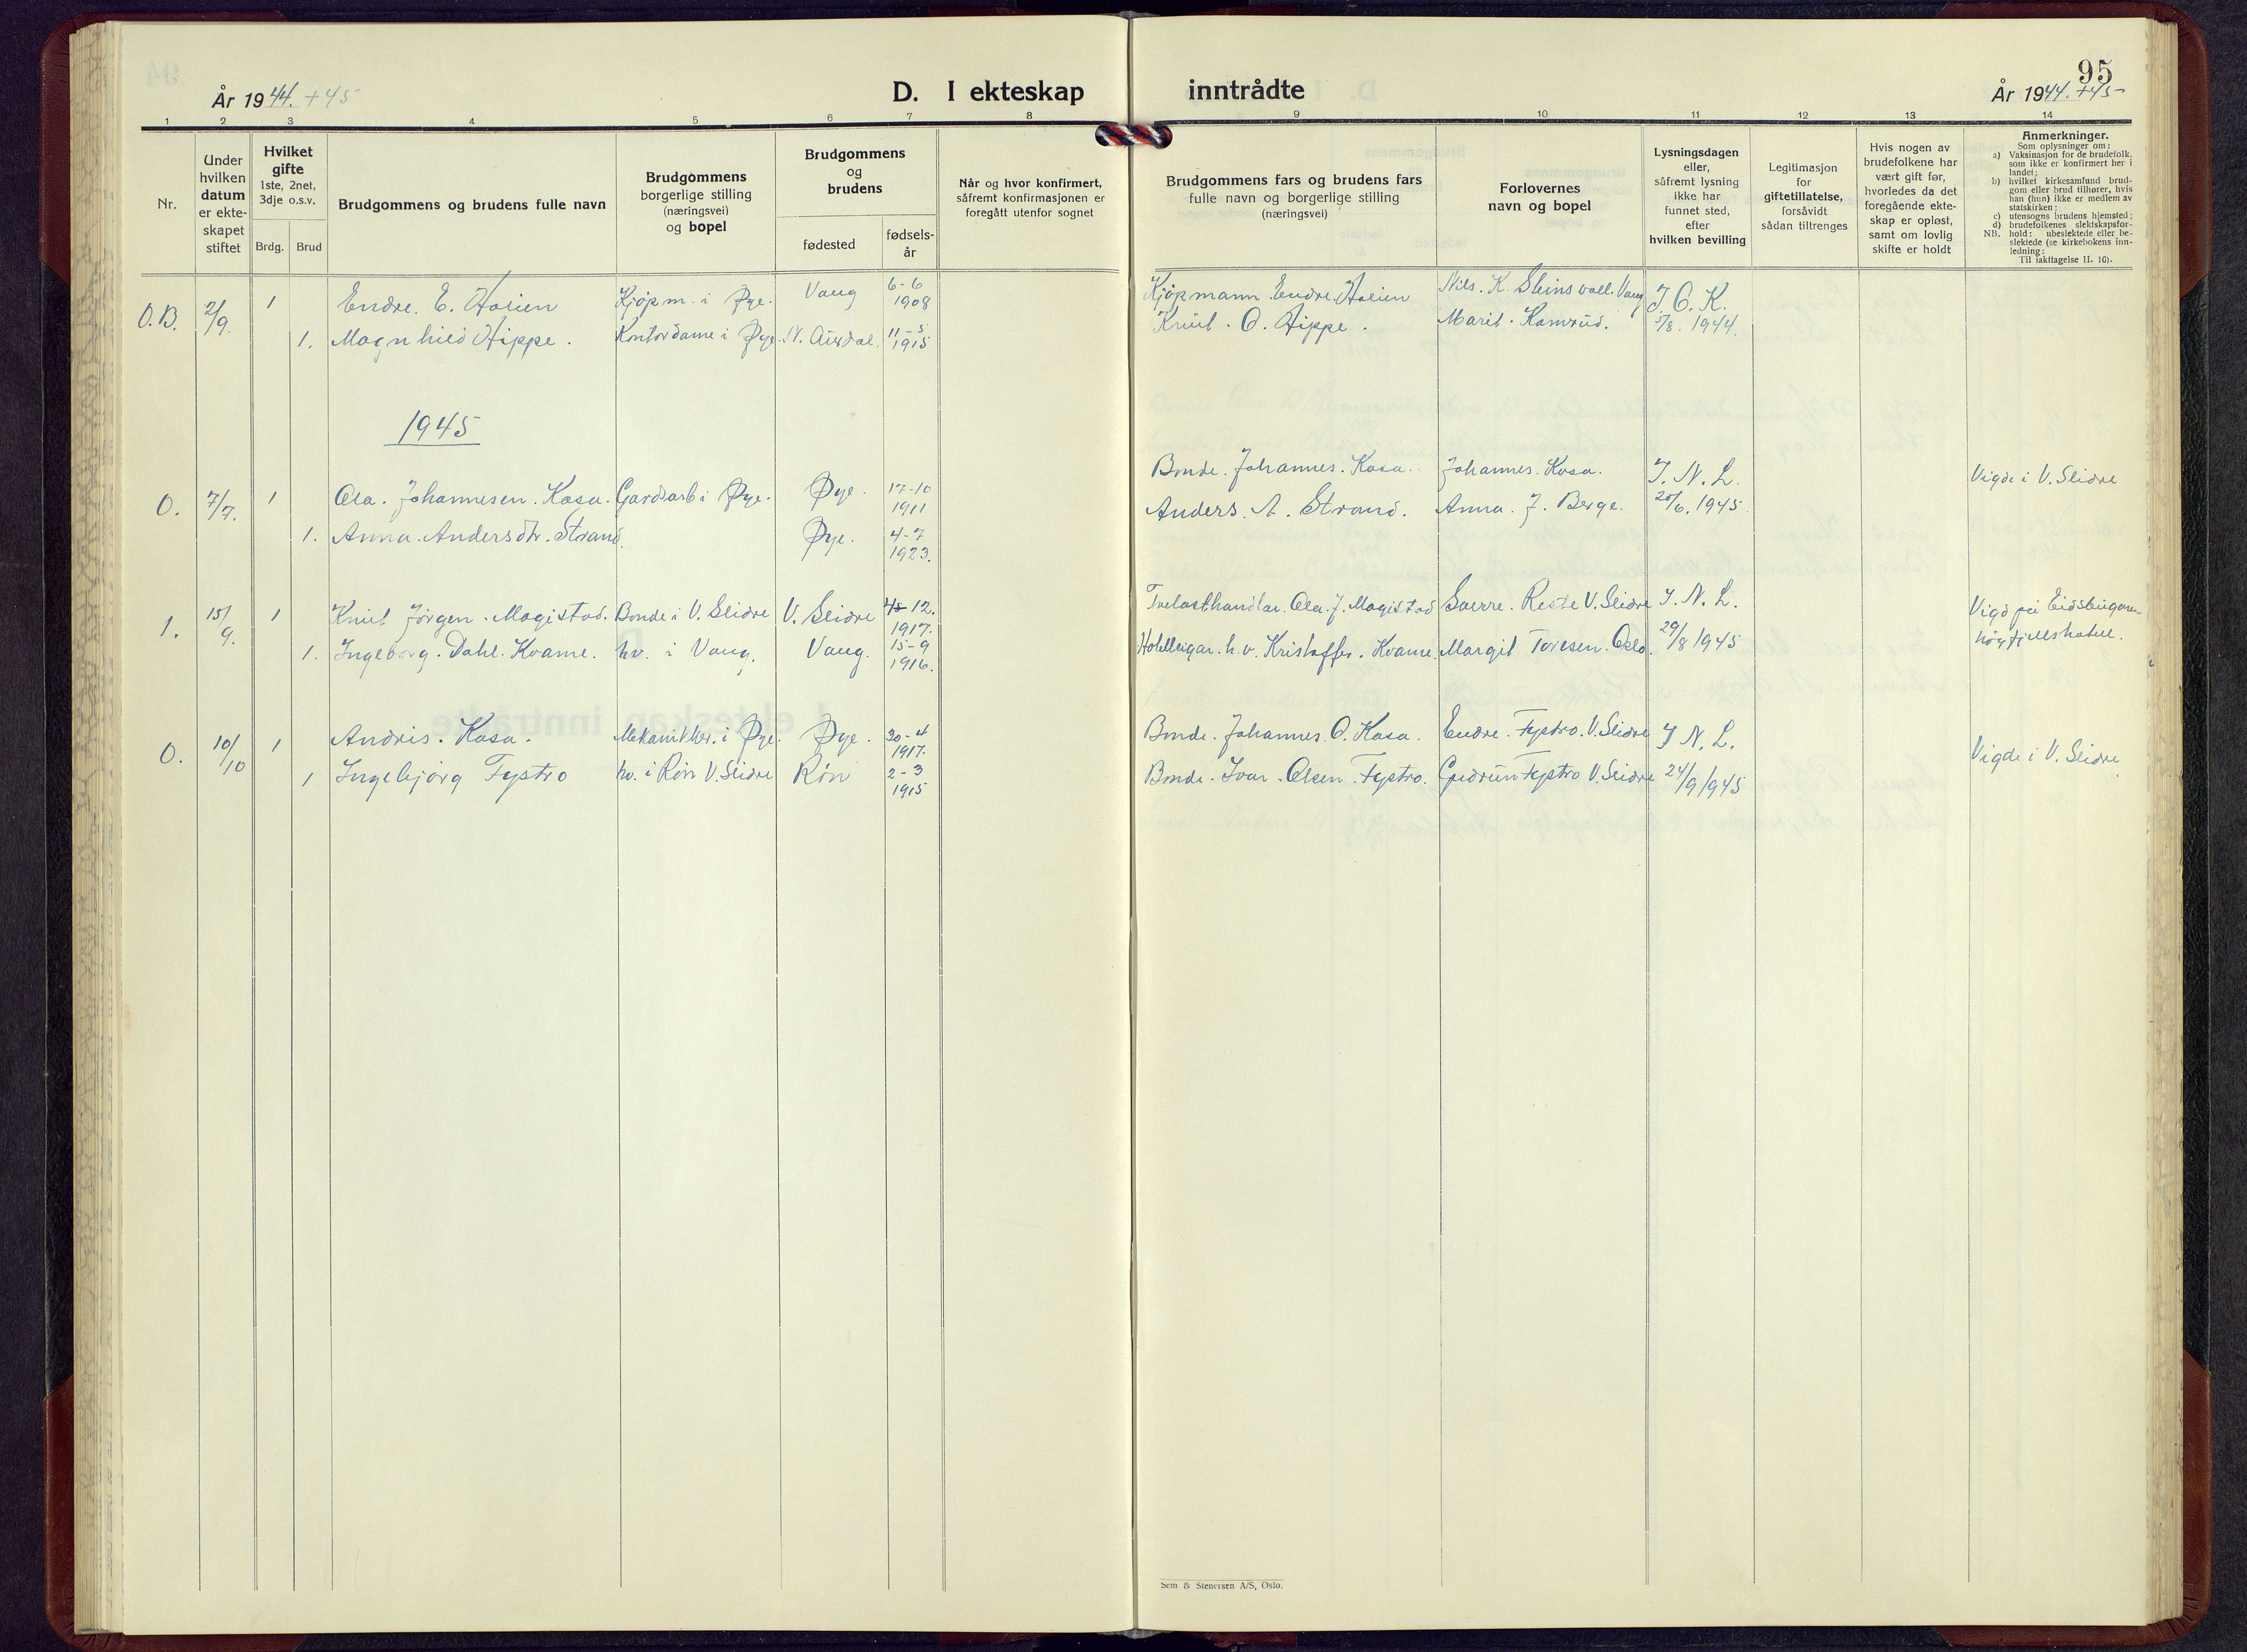 95
År 1944. +45
D. I ekteskap inntrådte
År 1944. +45
1 2 3 4 5 6 7 8 9 10 11 12 13 14
Nr.
Under
hvilken
datum
er ekte-
skapet
stiftet
Hvilket
gifte
1ste, 2net,
3dje o.s.v.
Brdg. Brud
Brudgommens og brudens fulle navn
Brudgommens
borgerlige stilling
(næringsvei)
og bopel
Brudgommens
og
brudens
fødested
fødsels-
år
Når og hvor konfirmert,
såfremt konfirmasjonen er
foregått utenfor sognet
Brudgommens fars og brudens fars
fulle navn og borgerlige stilling
(næringsvei)
Forlovernes
navn og bopel
Lysningsdagen
eller,
såfremt lysning
ikke har
funnet sted,
efter
hvilken bevilling
Legitimasjon
for
giftetillatelse,
forsåvidt
sådan tiltrenges
Hvis nogen av
brudefolkene har
vært gift før,
hvorledes da det
foregående ekte-
skap er opløst,
samt om lovlig
skifte er holdt
Anmerkninger.
Som oplysninger om:
a) Vaksinasjon for de brudefolk,
som ikke er konfirmert her i
landet;
b) hvilket kirkesamfund brud-
gom eller brud tilhører, hvis
han (hun) ikke er medlem av
statskirken;
c) utensogns brudens hjemsted;
d) brudefolkenes slektskapsfor-
NB. hold: ubeslektede eller be-
slektede (se kirkebokens inn-
ledning:
Til iakttagelse II. 10).
O.B. 2/9. 1 Endre. E. Hoeien Kjøpm. i Øye. Vang 6-6 1908 Kjøpmann. Endre. Hoeien Nils. K. Steinsvoll. Vang J. O. K.
1. Magnhild Hippe. Kontordame i Øye. N. Aurdal. 11-5 1915 Knut. O. Hippe. Marit. Kamrud. 5/8. 1944.
1945
O. 7/7. 1 Ola. Johannesen. Kasa. Gardsarb i Øye. Øye. 17-10 1911 Bonde. Johannes. Kasa. Johannes. Kasa. J. N. L. Vigde i V. Slidre
1. Anna. Andersdtr. Strand. Øye. 4-7 1923. Anders. A. Strand. Anna. J. Berge. 20/6. 1945
1. 15/9. 1 Knut Jørgen. Magistad. Bonde i V. Slidre V. Slidre 12. 1917. Trelasthandlar. Ola. J. Magistad Sverre. Reste V. Slidre J. N. L. Vigd på Eidsbugaren
1. Ingeborg. Dahl. Kvame. hv. i Vang. Vang. 15-9 1916. Hotelleigar. h.v. Kristoffer. Kvame. Margit Toresen. Oslo. 29/8 1945 høgfjellshotell.
O. 10/10 1 Andris. Kasa. Mekaniker. i Øye. Øye. 30-4 1917. Bonde. Johannes. O. Kasa. Endre. Fystro. V. Slidre J N. L. Vigde i V. Slidre
1 Ingebjørg Fystro hv. i Røn V. Slidre Røn 2-3 1915 Bonde. Ivar. Olsen. Fystro. Gudrun Fystro V. Slidre 24/9 1945
Sem & Stenersen A/S, Oslo.